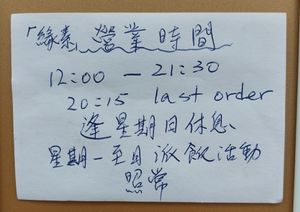 「緣素」營業時間
12:00 — 21:30
20:15 last order
逢星期日休息
星期一至日派飯活動
照常